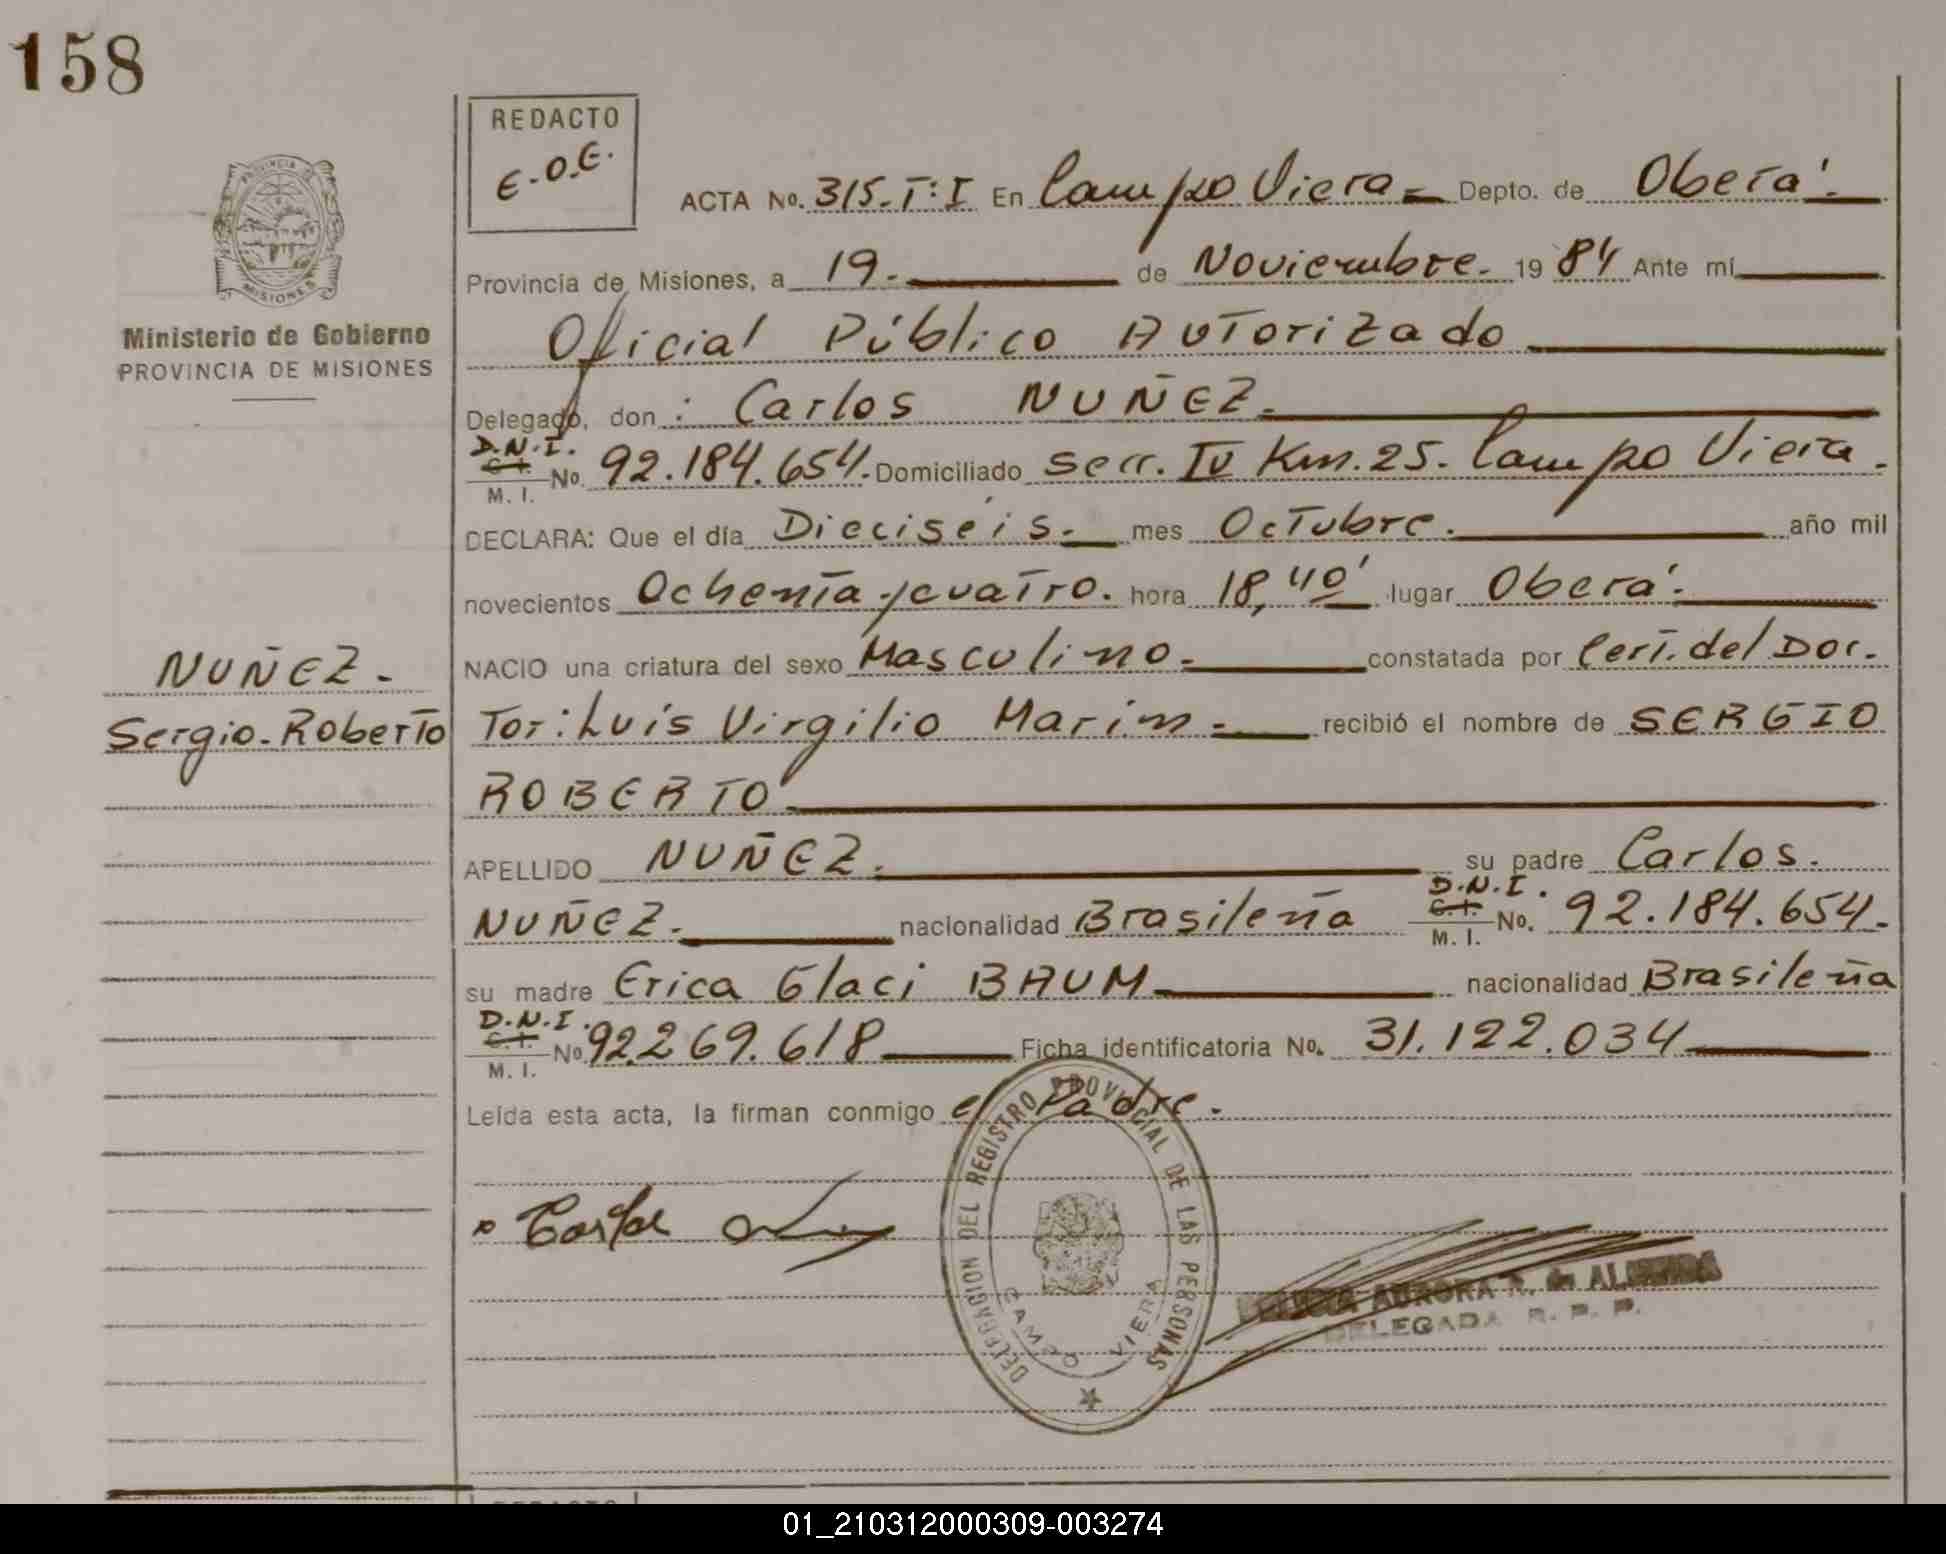 158
REDACTO
E.O.E.
PROVINCIA DE
MISIONES
Ministerio de Gobierno
PROVINCIA DE MISIONES
ACTA No. 315.T:I En Campo Viera Depto. de Oberá.
Provincia de Misiones, a 19. de Noviembre. 19 84 Ante mí
Oficial Público Autorizado
Delegado, don : Carlos NUÑEZ.
D.N.I. C. I. M. I. No. 92.184.654. Domiciliado Secc. IV Km. 25. Campo Viera.
DECLARA: Que el día Dieciséis. mes Octubre. año mil
novecientos Ochenta y cuatro. hora 18,40' lugar Oberá.
NACIO una criatura del sexo Masculino. constatada por Cert. del Doc.
NUÑEZ.
Sergio Roberto
Tor: Luís Virgilio Marin. recibió el nombre de SERGIO
ROBERTO
APELLIDO NUÑEZ. su padre Carlos.
NUÑEZ. nacionalidad Brasileña D.N.I. C. I. M. I. No. 92.184.654.
su madre Erica Glaci BAUM nacionalidad Brasileña
D.N.I. C. I. M. I. No. 92.269.618 Ficha identificatoria No. 31.122.034
Leída esta acta, la firman conmigo el Padre.
DELEGACION DEL REGISTRO PROVINCIAL DE LAS PERSONAS
CAMPO VIERA
AURORA R. de
DELEGADA R. P. P.
REDACTO
01_210312000309-003274